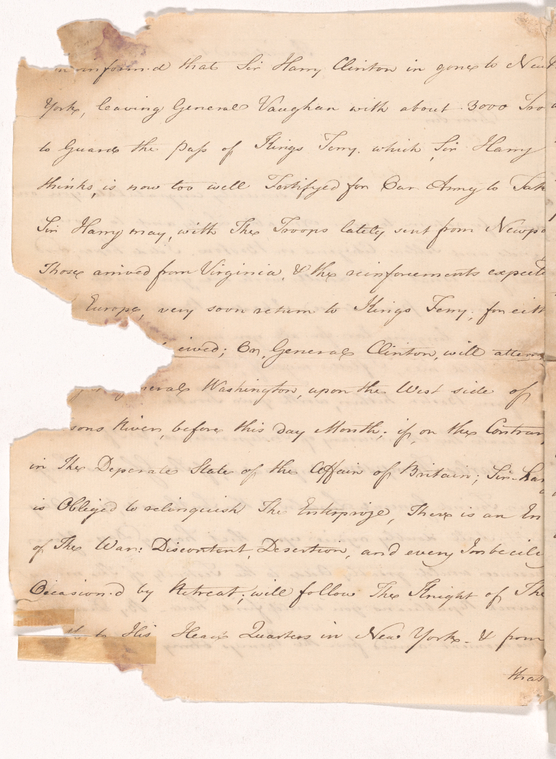 informed that Sir Harry Clinton in gone to New
York, leaving General Vaughan with about 3000
to Guard the Pass of Kings Ferry. which, Sir Harry
thinks, is now too well Fortifyed for Our Army to
Sir Harry may, with The Troops lately sent from
Those arrived from Virginia, & the reinforcements
Europe, very soon return to Kings Ferry; for
General Clinton, will
Washington, upon the West side of
River, before this day Month; if on the
in The Desperate State of the Affairs of Britain; Sir
is Obliged to relinquish The Enterprize, There is an
of The War: Discontent Desertion, and every
Occasion'd by Retreat; will follow The Knight of The
to His Head Quarters in New York. & from
that